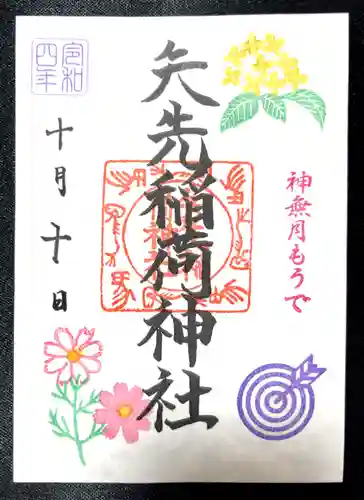 令和
四年
十月十日
矢先稲荷神社
神無月もうで